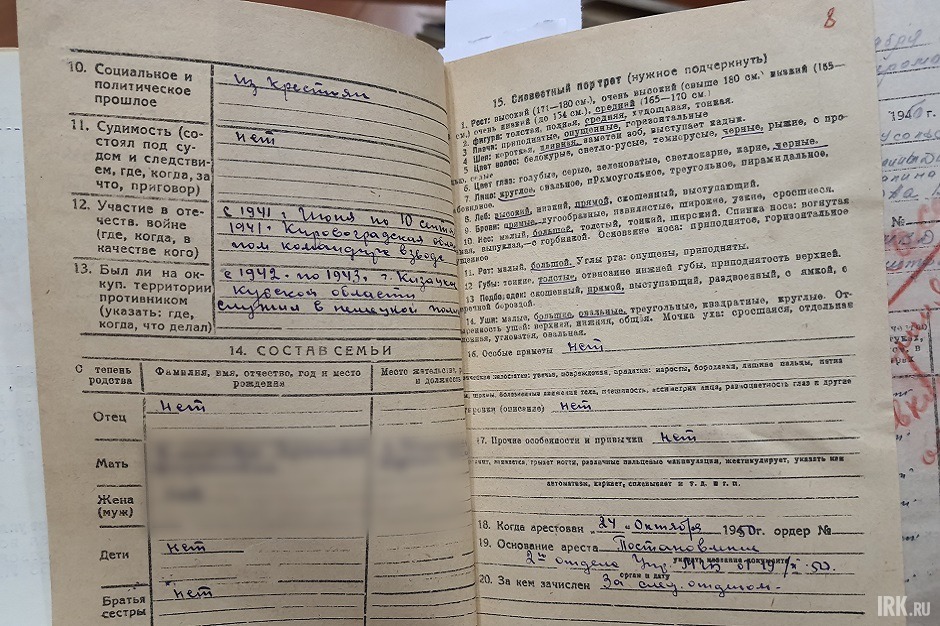 10. Социальное и
политическое
прошлое
из крестьян
11. Судимость (со-
стоял под су-
дом и следстви-
ем, где, когда, за
что, приговор)
нет
12. Участие в оте-
честв. войне
(где, когда, в
качестве кого)
с 1941 г. Июня по 10
1941 г. Кировоградская
командир взвода
13. Был ли на ок-
куп. территории
противником
(указать: где,
когда, что делал)
с 1942 г. по 1943 г. г. Казачка
Курской области
служил в немецкой
14. СОСТАВ СЕМЬИ
Степень
родства
Фамилия, имя, отчество, год и место
рождения
Место жительства,
и должность
Отец
нет
Мать
Жена
(муж)
Дети
нет
Братья
сестры
нет
8
15. Словестный портрет (нужное подчеркнуть)
1. Рост: высокий (171—180 см.), очень высокий (свыше 180 см.) низкий (165—
см.) очень низкий (до 154 см.), средний (165—170 см.)
2. фигура: толстая, полная, средняя, худощавая, тонкая.
3. Плечи: приподнятые, опущенные, горизонтальные
4. Шея: короткая, длинная, заметен зоб, выступает кадык.
5. Цвет волос: белокурые, светло-русые, темнорусые, черные, рыжие, с про-
седые
6. Цвет глаз: голубые, серые, зеленоватые, светлокарие, карие, черные.
7. Лицо: круглое, овальное, прямоугольное, треугольное, пирамидальное,
8. Лоб: высокий, низкий, прямой, скошенный, выступающий.
9. Брови: прямые, дугообразные, извилистые, широкие, узкие, сросшиеся.
10. Нос: малый, большой, толстый, тонкий, широкий. Спинка носа: вогнутая
выпуклая, с горбинкой. Основание носа: приподнятое, горизонтальное
11. Рот: малый, большой. Углы рта: опущены, приподняты.
12. Губы: тонкие, толстые, отвисание нижней губы, приподнятость верхней.
13. Подбородок: скошенный, прямой, выступающий, раздвоенный, с ямкой, с
поперечной бороздой.
14. Уши: малые, большие, овальные, треугольные, квадратные, круглые. От-
ушей: верхняя, нижняя, общая. Мочка уха: сросшаяся, отдельная
угловатая, овальная.
16. Особые приметы нет
недостатки: увечья, повреждения, наросты, бородавки, лишние пальцы, пятна
шрамы, болезненные движения тела, плешивость, ассиметрия лица, разноцветность глаз и другие
(описание) нет
17. Прочие особенности и привычки нет
заикается, грызет ногти, различные пальцевые манипуляции, жестикулирует, указать кем
автоматизм, картавит, сплевывает и т. д. и т. п.
18. Когда арестован "24" Октября 1950 г. ордер №
19. Основание ареста Постановление
указать название документа
2го отдела Упр. МГБ от 19/X-50.
орган и дату
20. За кем зачислен За след. отделом.
№
IRK.RU